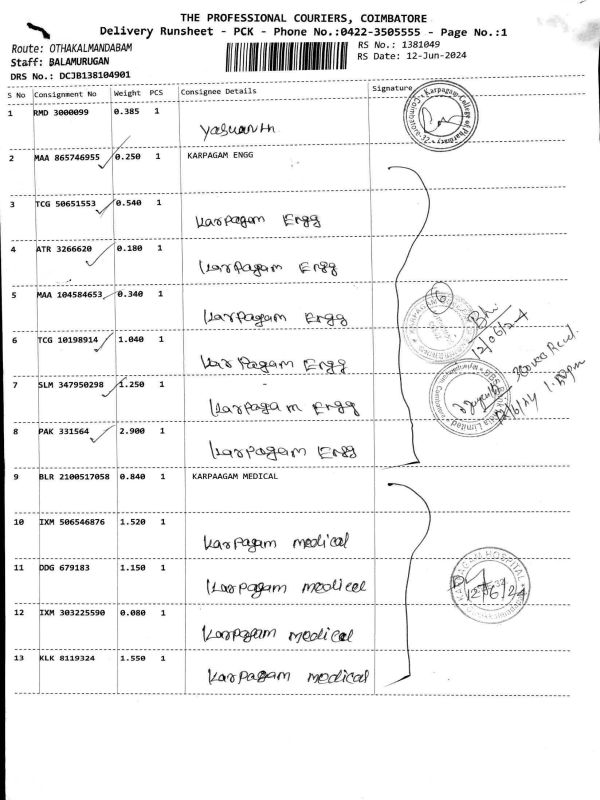 THE PROFESSIONAL COURIERS, COIMBATORE
Delivery Runsheet - PCK - Phone No.:0422-3505555 - Page No.:1
Route: OTHAKALMANDABAM
RS No.: 1381049
Staff: BALAMURUGAN
RS Date: 12-Jun-2024
DRS No.: DCJB138104901
S No Consignment No Weight PCS Consignee Details Signature
1 RMD 3000099 0.385 1
Yasuanth
2 MAA 865746955 0.250 1 KARPAGAM ENGG
3 TCG 50651553 0.540 1
Karpagam Engg
4 ATR 3266620 0.180 1
Karpagam Engg
5 MAA 104584653 0.340 1
Karpagam Engg
6 TCG 10198914 1.040 1
Karpagam Engg
7 SLM 347950298 1.250 1
Karpagam Engg
8 PAK 331564 2.900 1
Karpagam Engg
9 BLR 2100517058 0.840 1 KARPAAGAM MEDICAL
10 IXM 506546876 1.520 1
Karpagam medical
11 DDG 679183 1.150 1
Karpagam medical
12 IXM 303225590 0.080 1
Karpagam medical
13 KLK 8119324 1.550 1
Karpagam medical
Karpagam College of Pharmacy
6
12/06/24
Limited
KARPAGAM HOSPITAL
12/6/24